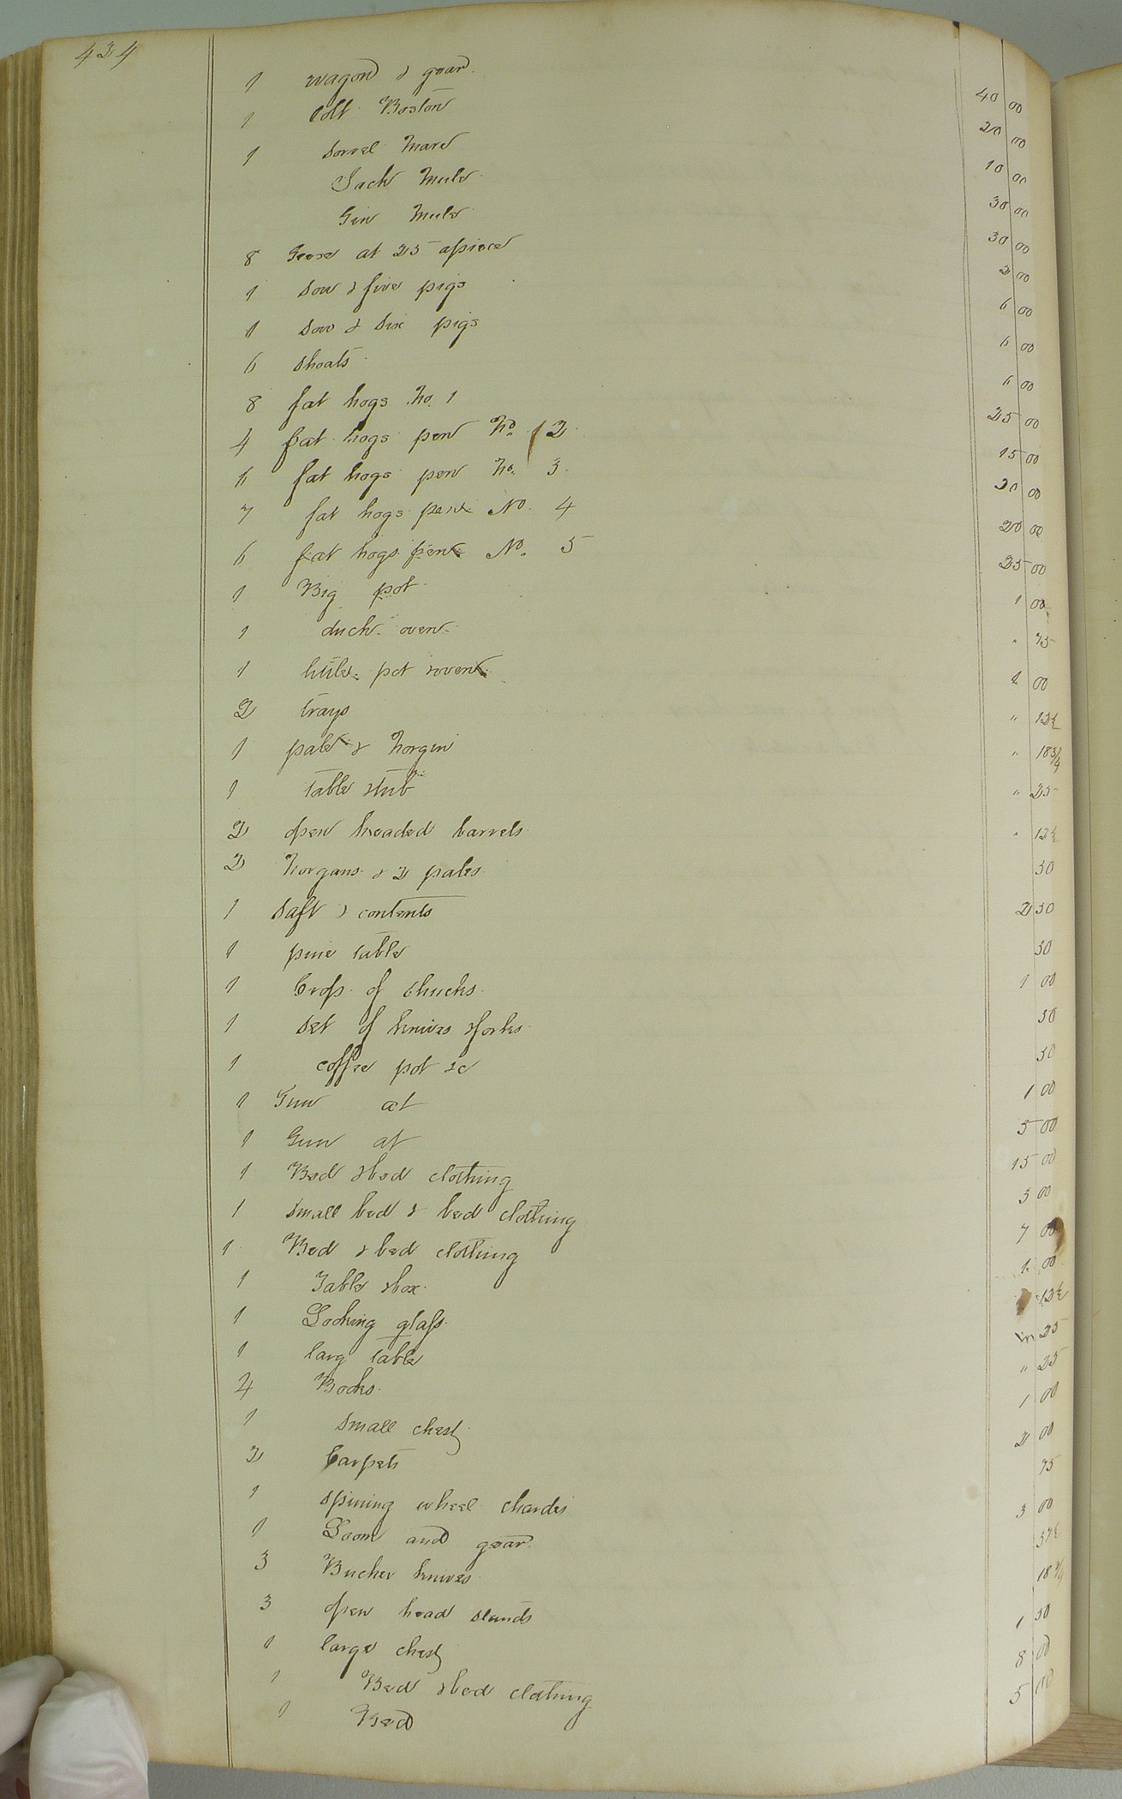 434
1 wagon & gear 40 00
1 Colt Boston 20 00
1 Sorrel Mare 10 00
Jack Mule 30 00
Gin Mule 30 00
8 Geese at 25 apiece 2 00
1 Sow & five pigs 6 00
1 Sow & Six pigs 6 00
6 Shoats 6 00
8 fat hogs No. 1 25 00
4 fat hogs pen No 2 15 00
6 fat hogs pen No. 3 20 00
7 fat hogs pen No. 4 20 00
6 fat hogs pen No. 5 25 00
1 Big pot 1 00
1 duch oven " 75
1 little pot & oven 1 00
2 trays " 12½
1 pale & Norgin " 18 3/4
1 table & tub " 25
2 open headed barrels " 12½
2 Norgans & 2 pales 50
1 Saft & contents 2 50
1 pine table 50
1 Crop of Shucks 1 00
1 Set of knives & forks 50
1 coffee pot &c 50
1 Gun at 1 00
1 Gun at 5 00
1 Bed & bed clothing 15 00
1 Small bed & bed clothing 5 00
1 Bed & bed clothing 7 00
1 Table & box 1 00
1 Looking glass 12½
1 larg table 25
4 Books " 25
1 Small chest 1 00
2 Carpets 2 00
1 Spining wheel & cards 75
1 Loom and gear 3 00
3 Bucher knives 37½
3 open head stands 18 3/4
1 large chest 1 50
1 Bed & bed clothing 8 00
1 Bed 5 00